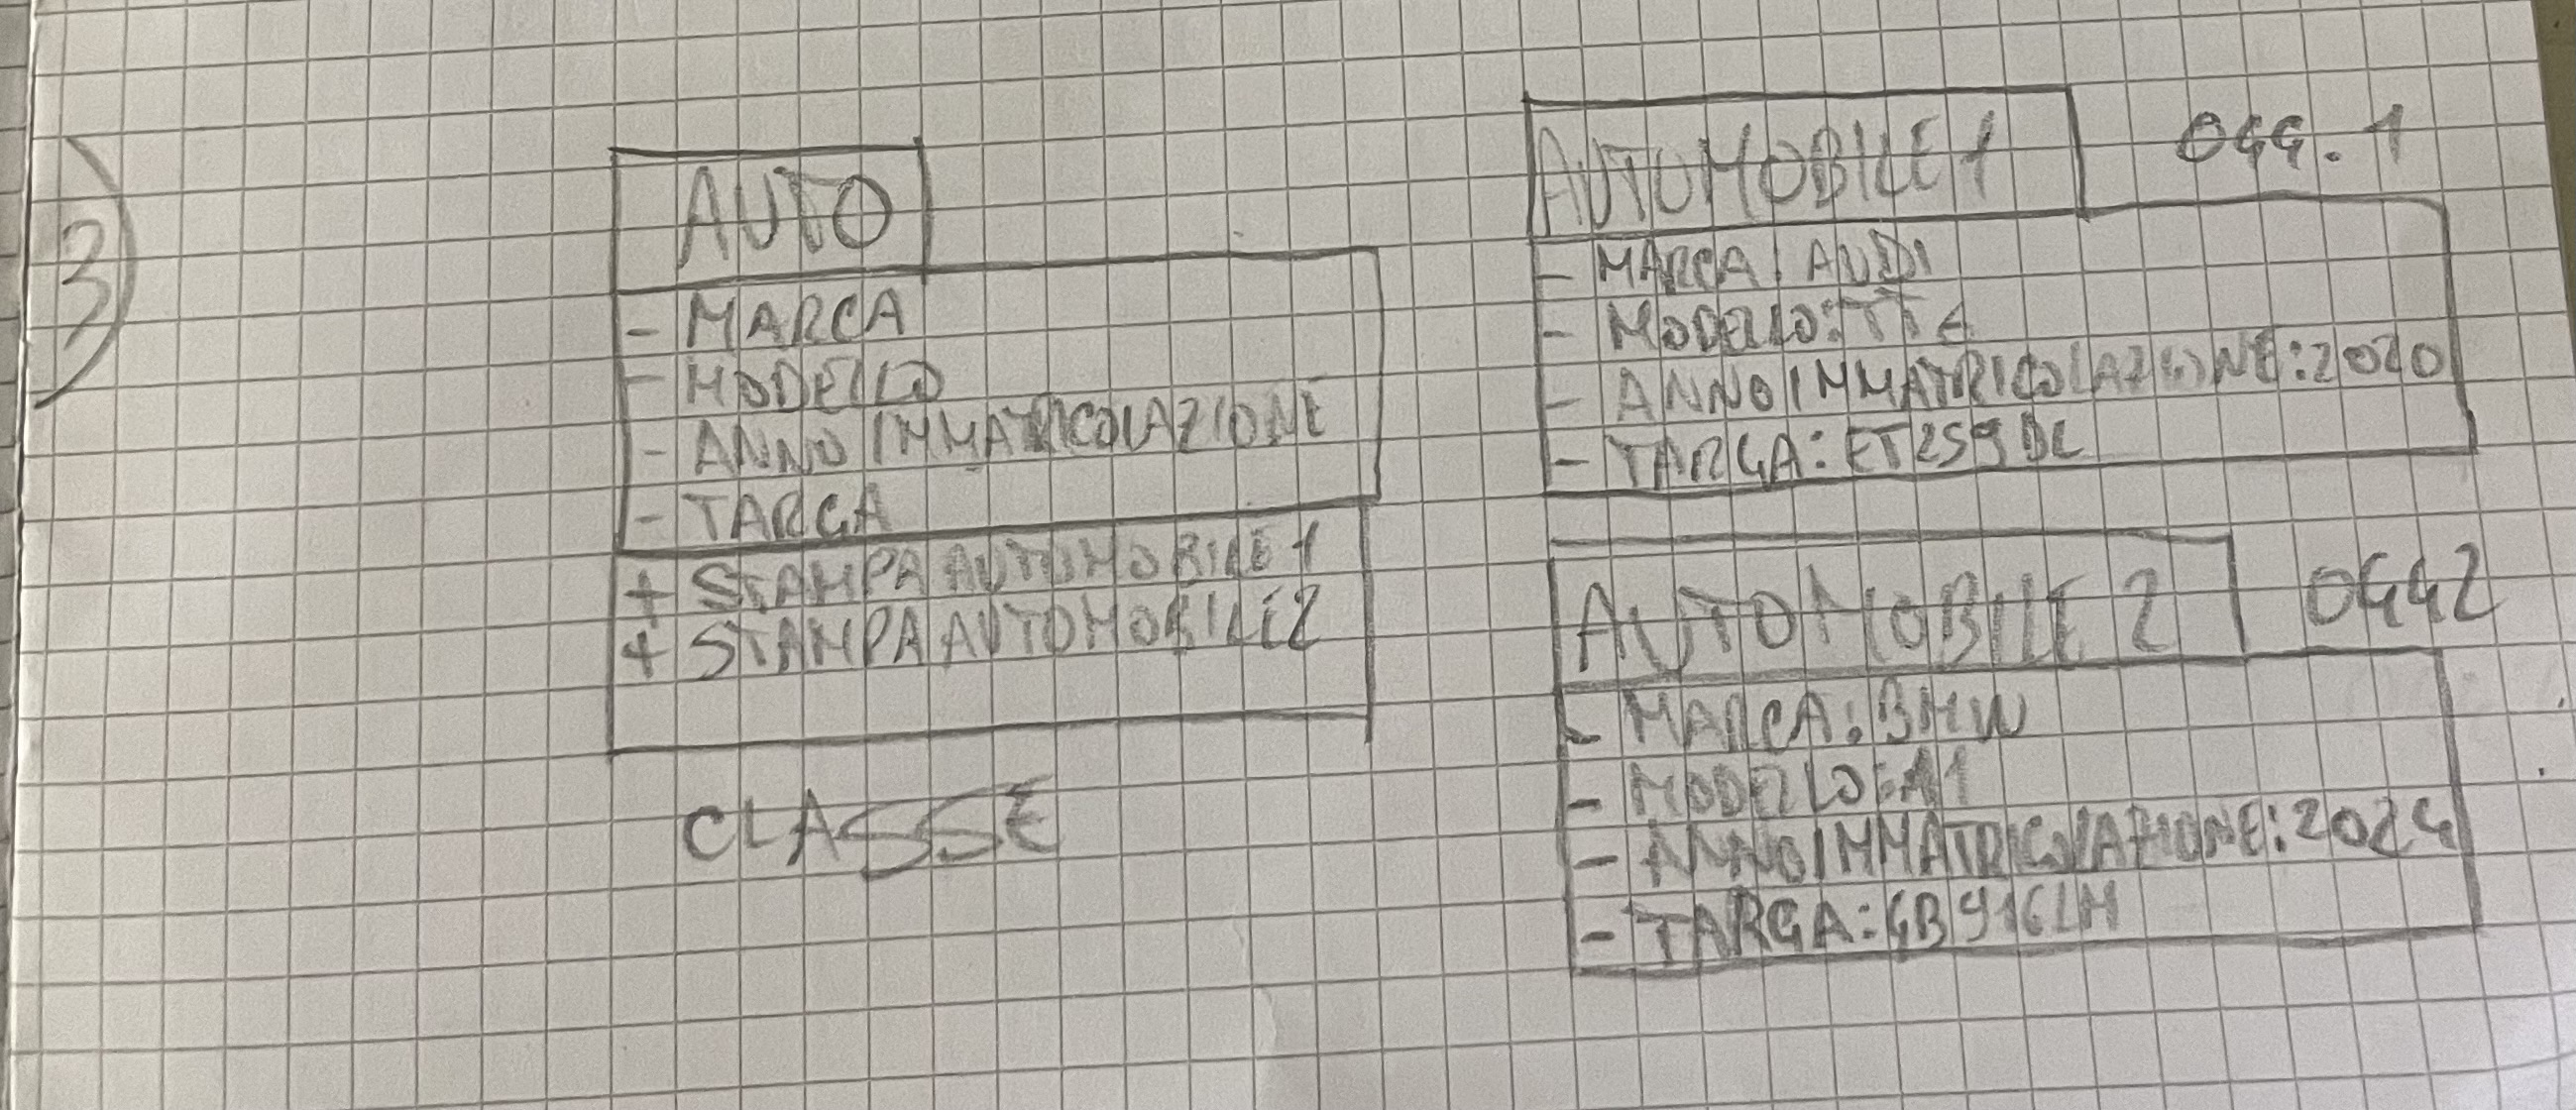 3)
AUTO
- MARCA
- MODELLO
- ANNO IMMATRICOLAZIONE
- TARGA
+ STAMPA AUTOMOBILE 1
+ STAMPA AUTOMOBILE 2
CLASSE
AUTOMOBILE 1
OGG. 1
- MARCA: AUDI
- MODELLO: TT
- ANNO IMMATRICOLAZIONE: 2020
- TARGA: ET259DL
AUTOMOBILE 2
OGG 2
- MARCA: BMW
- MODELLO:
- ANNO IMMATRICOLAZIONE: 2024
- TARGA: GB916LM